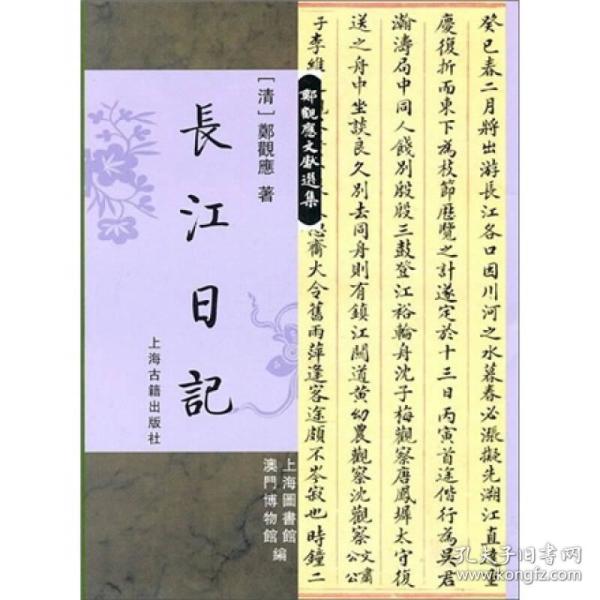 癸巳春二月將出游長江各口因川河之水暮春必漲擬先溯江直達重
慶復折而東下為枝節歷覽之計遂定於十三日丙寅首途偕行為吳君
瀚濤局中同人餞別殷殷三鼓登江裕輪舟沈子梅觀察唐鳳墀太守復
送之舟中坐談良久別去同舟則有鎮江關道黃幼農觀察沈觀察文肅公
子李維
齋大令舊雨萍逢客途頗不岑寂也時鐘二
鄭觀應文獻選集
［清］鄭觀應 著
長江日記
上海古籍出版社
上海圖書館
澳門博物館
編
孔夫子旧书网
kongfz.com